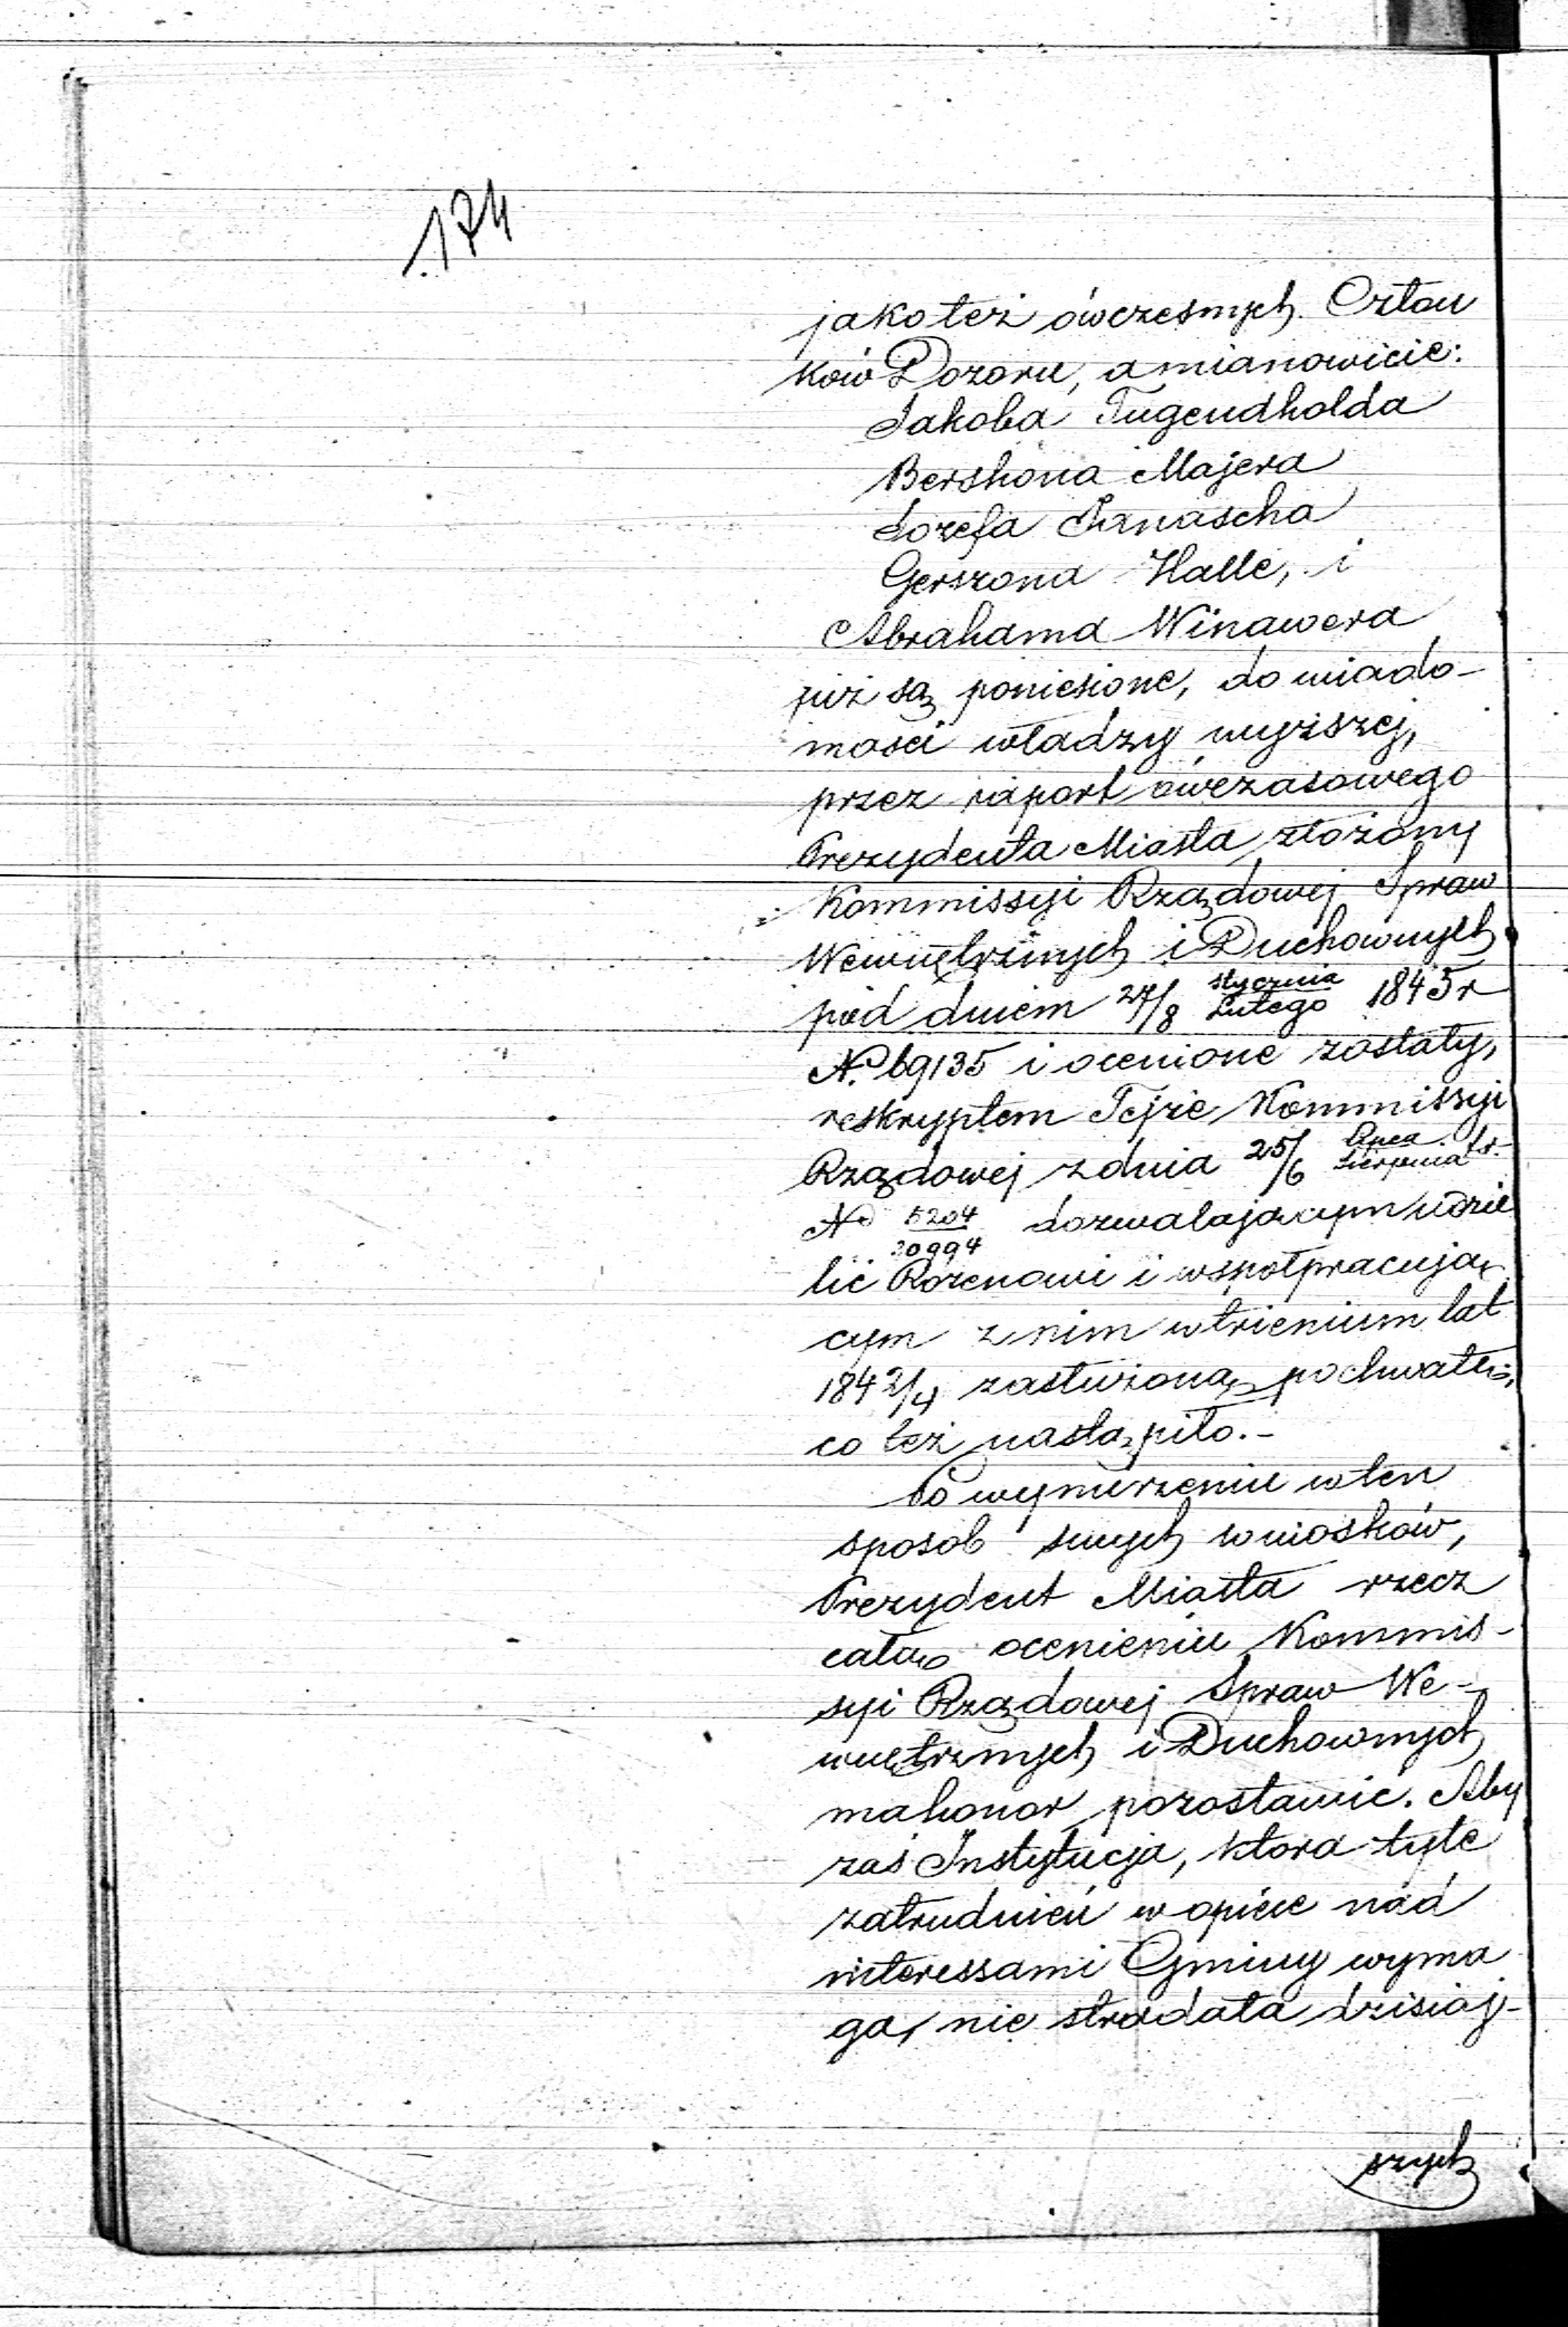 174
jako też ówczesnych Człon
ków Dozoru, a mianowicie:
Jakoba Tugendholda
Bershona Majera
Jozefa Janascha
Gerszona Halle, i
Abrahama Winawera
już są poniesione, do wiado-
mości władzy wyższej,
przez raport ówczasowego
Prezydenta Miasta złożony
Kommissyi Rządowej Spraw
Wewnętrznych i Duchownych
pod dniem 27/8 stycznia/Lutego 1845 r
N. 69135 i ocenione zostały,
reskryptem Tejże Kommissyi
Rządowej z dnia 25/6 Lipca/Sierpnia t.r.
No 5204/30994 dozwalającym udzie
lić Rozenowi i współpracują
cym z nim w trienium lat
1842/4 zasłużoną pochwałę,
co też nastąpiło.-
Po wynurzeniu w ten
sposob swych wniosków,
Prezydent Miasta rzecz
całą ocenieniu Kommis-
syi Rządowej Spraw We-
wnętrznych i Duchownych
ma honor pozostawić. Aby
zaś Instytucja, ktora tyle
zatrudnień w opiece nad
interessami Gminy wyma
ga, nie stradała dzisiaj-
szych